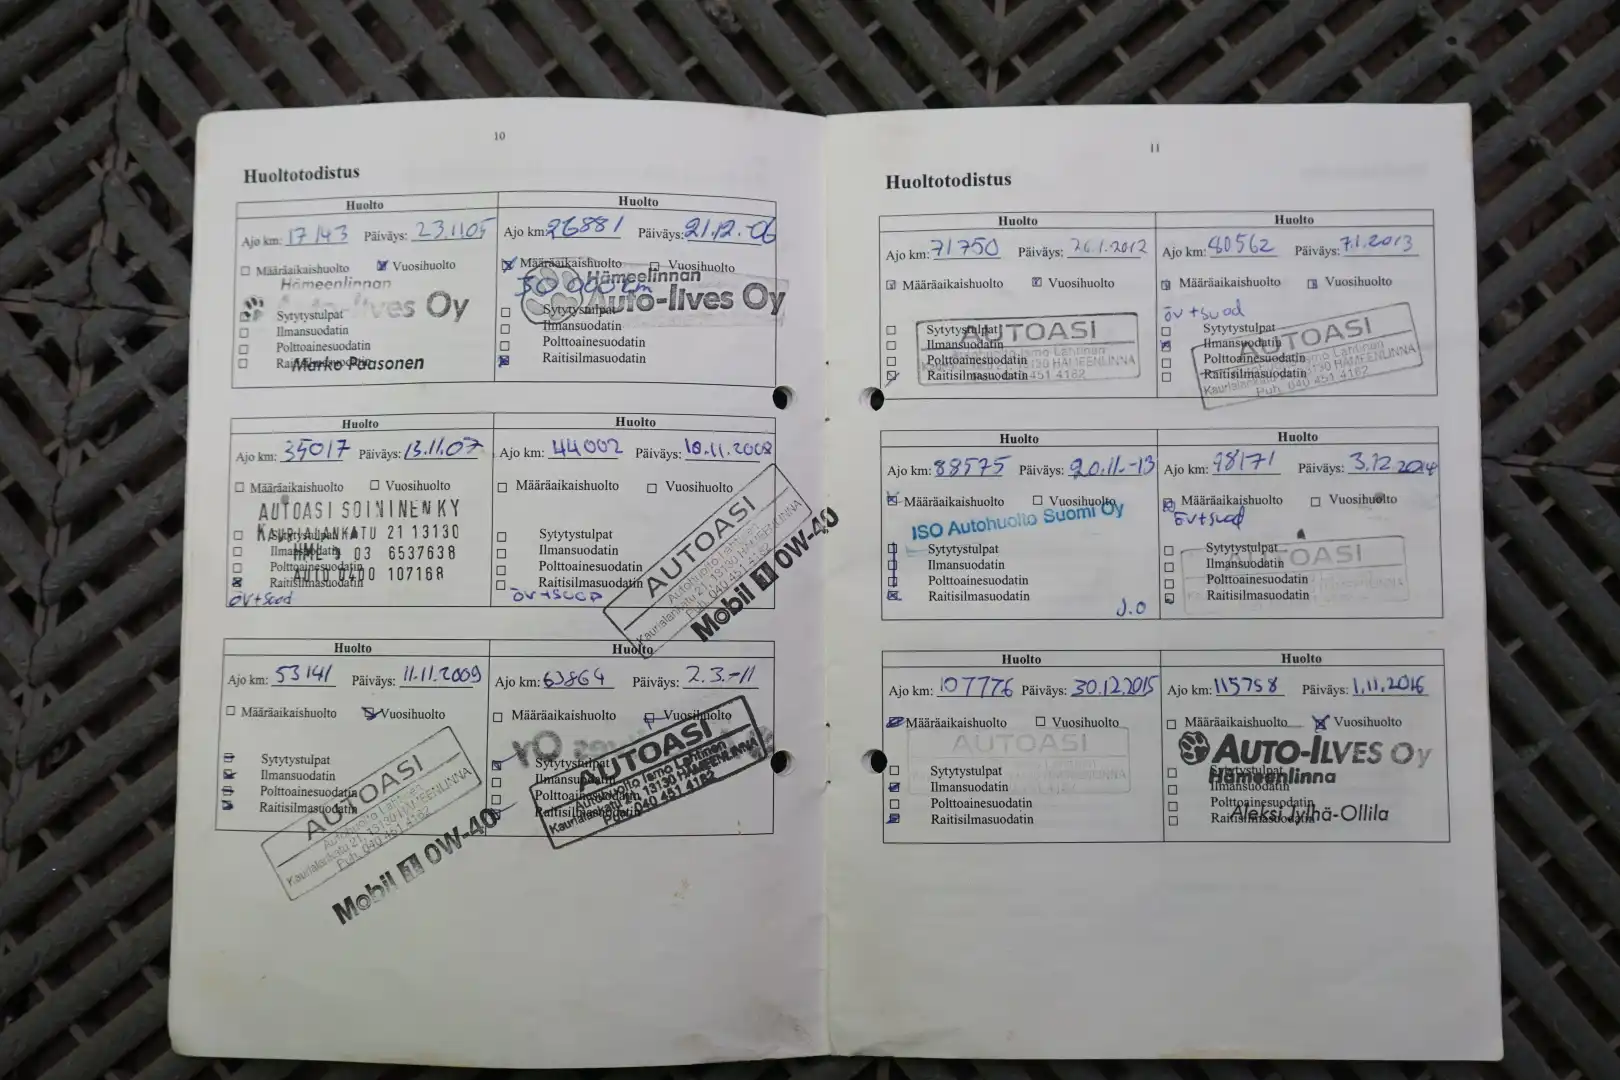 10
Huoltotodistus
Huolto
Ajo km: 17143 Päiväys: 23.11.05
Määräaikaishuolto Vuosihuolto
Hämeelinnan
Auto-Ilves Oy
Sytytystulpat
Ilmansuodatin
Polttoainesuodatin
Raitisilmasuodatin
Marko Paasonen
Huolto
Ajo km: 26881 Päiväys: 21.12.-06
Määräaikaishuolto Vuosihuolto
30 000 km
Hämeelinnan
Auto-Ilves Oy
Sytytystulpat
Ilmansuodatin
Polttoainesuodatin
Raitisilmasuodatin
Huolto
Ajo km: 35017 Päiväys: 13.11.07
Määräaikaishuolto Vuosihuolto
AUTOASI SOININEN KY
KAURIALANKATU 21 13130
HML 03 6537638
AUTO 0400 107168
Sytytystulpat
Ilmansuodatin
Polttoainesuodatin
Raitisilmasuodatin
öv+suod
Huolto
Ajo km: 44002 Päiväys: 18.11.2008
Määräaikaishuolto Vuosihuolto
Sytytystulpat
Ilmansuodatin
Polttoainesuodatin
Raitisilmasuodatin
öv+suod
AUTOASI
Autohuolto Ismo Lahtinen
Kaurialankatu 21, 13130 HÄMEENLINNA
Puh. 040 451 4182
Mobil 1 0W-40
Huolto
Ajo km: 53141 Päiväys: 11.11.2009
Määräaikaishuolto Vuosihuolto
Sytytystulpat
Ilmansuodatin
Polttoainesuodatin
Raitisilmasuodatin
AUTOASI
Autohuolto Ismo Lahtinen
Kaurialankatu 21, 13130 HÄMEENLINNA
Puh. 040 451 4182
Mobil 1 0W-40
Huolto
Ajo km: 63864 Päiväys: 2.3.-11
Määräaikaishuolto Vuosihuolto
Sytytystulpat
Ilmansuodatin
Polttoainesuodatin
Raitisilmasuodatin
AUTOASI
Autohuolto Ismo Lahtinen
Kaurialankatu 21, 13130 HÄMEENLINNA
Puh. 040 451 4182
11
Huoltotodistus
Huolto
Ajo km: 71750 Päiväys: 26.1.2012
Määräaikaishuolto Vuosihuolto
AUTOASI
Autohuolto Ismo Lahtinen
13130 HÄMEENLINNA
451 4182
Sytytystulpat
Ilmansuodatin
Polttoainesuodatin
Raitisilmasuodatin
Huolto
Ajo km: 80562 Päiväys: 7.1.2013
Määräaikaishuolto Vuosihuolto
öv+suod
Sytytystulpat
Ilmansuodatin
Polttoainesuodatin
Raitisilmasuodatin
AUTOASI
Autohuolto Ismo Lahtinen
Kaurialankatu 13130 HÄMEENLINNA
Puh. 040 451 4182
Huolto
Ajo km: 88575 Päiväys: 20.11.-13
Määräaikaishuolto Vuosihuolto
ISO Autohuolto Suomi Oy
Sytytystulpat
Ilmansuodatin
Polttoainesuodatin
Raitisilmasuodatin
J.O
Huolto
Ajo km: 98171 Päiväys: 3.12.2014
Määräaikaishuolto Vuosihuolto
öv+suod
AUTOASI
Sytytystulpat
Ilmansuodatin
Polttoainesuodatin
Raitisilmasuodatin
Huolto
Ajo km: 107776 Päiväys: 30.12.2015
Määräaikaishuolto Vuosihuolto
AUTOASI
Sytytystulpat
Ilmansuodatin
Polttoainesuodatin
Raitisilmasuodatin
Huolto
Ajo km: 115758 Päiväys: 1.11.2016
Määräaikaishuolto Vuosihuolto
AUTO-ILVES Oy
Hämeenlinna
Sytytystulpat
Ilmansuodatin
Polttoainesuodatin
Raitisilmasuodatin
Aleksi Jylhä-Ollila